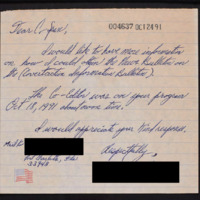 004637 DC1291
Dear Sirs,
I would like to have more information
on how I could obtain the News Bulletin on
the (Covertaction Information Bulletin).
The Co-Editor was on your program
Oct 18, 1991 about noon time.
I would appreciate your kind respons.
Respectfully,